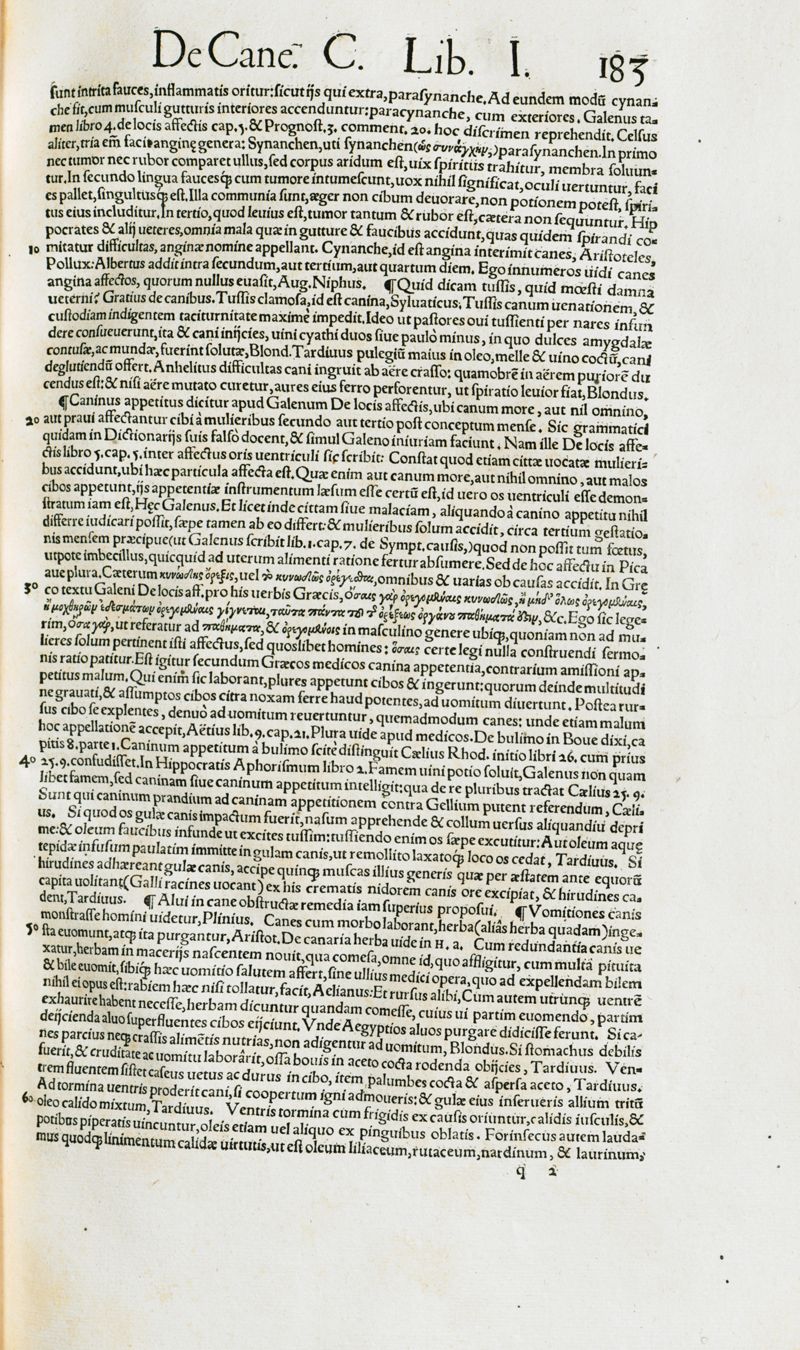 De Cane. C. Lib. I. 183
sunt intrita fauces, inflammatis oritur: sicut ijs qui extra, parasynanche. Ad eundem modū cynan-
che fit, cum musculi gutturis interiores accenduntur: paracynanche, cum exteriores. Galenus ta-
men libro 4. de locis affectis cap. 5. & Prognost. 3. comment. 20. hoc discrimen reprehendit. Celsus
aliter, tria em̃ facit anginę genera: Synanchen, uti synanchen (ὡς συνάγχην,) parasynanchen. In primo
nec tumor nec rubor comparet ullus, sed corpus aridum est, uix spiritus trahitur, membra soluun-
tur. In secundo lingua fauceśꝗ cum tumore intumescunt, uox nihil significat, oculi uertuntur, faci
es pallet, singultusꝗ est. Illa communia sunt, æger non cibum deuorare, non potionem potest, spiri-
tus eius includitur. In tertio, quod leuius est, tumor tantum & rubor est, cætera non sequuntur. Hip
pocrates & alij ueteres, omnia mala quæ in gutture & faucibus accidunt, quas quidem spirandi co-
10 mitatur difficultas, anginæ nomine appellant. Cynanche, id est angina interimit canes, Aristoteles,
Pollux: Albertus addit intra secundum, aut tertium, aut quartum diem. Ego innumeros uidi canes
angina affectos, quorum nullus euasit, Aug. Niphus. ¶ Quid dicam tussis, quid mœsti damna
ueterni? Gratius de canibus. Tussis clamosa, id est canina, Syluaticus. Tussis canum uenationem, &
custodiam indigentem taciturnitate maxime impedit. Ideo ut pastores oui tussienti per nares infun
dere consueuerunt, ita & cani inijcies, uini cyathi duos siue paulò minus, in quo dulces amygdalæ
contusæ, ac mundæ, fuerint solutæ, Blond. Tardiuus pulegiū maius in oleo, melle & uino coctū, cani
deglutiendū offert. Anhelitus difficultas cani ingruit ab aëre crasso: quamobrē in aërem puriorē du
cendus est: & nisi aëre mutato curetur, aures eius ferro perforentur, ut spiratio leuior fiat, Blondus.
¶ Caninus appetitus dicitur apud Galenum De locis affectis, ubi canum more, aut nil omnino,
20 aut praui affectantur cibi à mulieribus secundo aut tertio post conceptum mense. Sic grammatici
quidam in Dictionarijs suis falsò docent, & simul Galeno iniuriam faciunt. Nam ille De locis affe-
ctis libro 5. cap. 5. inter affectus oris uentriculi sic scribit: Constat quod etiam cittæ uocatæ mulieri-
bus accidunt, ubi hæc particula affecta est. Quæ enim aut canum more, aut nihil omnino, aut malos
cibos appetunt, ijs appetentiæ instrumentum læsum esse certū est, id uero os uentriculi esse demon-
stratum iam est, Hęc Galenus. Et licet inde cittam siue malaciam, aliquando à canino appetitu nihil
differre iudicari possit, sæpe tamen ab eo differt: & mulieribus solum accidit, circa tertium gestatio-
nis mensem præcipue (ut Galenus scribit lib. 1. cap. 7. de Sympt. causis,) quod non possit tum fœtus,
utpote imbecillus, quicquid ad uterum alimenti ratione fertur absumere. Sed de hoc affectu in Pica
aue plura. Cæterum κυνώδης ὄρεξις, uel τὸ κυνωδῶς ὀρέγεσθαι, omnibus & uarias ob causas accidit. In Græ
30 co textu Galeni De locis aff. pro his uerbis Græcis, ὅσαις γὰρ ὀρεγομέναις κυνωδῶς, ἢ μηδ' ὅλως ὀρεγομέναις,
ἢ μοχθηρῶν ἐδεσμάτων ὀρεγομέναις γίγνεται, ταῦτα πάντα τοῦ τ̃ ὀρέξεως ὀργάνου παθήματά ἐστιν, &c. Ego sic lege-
rim, ὅσα γὰρ, ut referatur ad παθήματα, & ὀρεγομένοις in masculino genere ubiꝗ, quoniam non ad mu-
lieres solum pertinent isti affectus, sed quoslibet homines: ὅσαις certe legi nulla construendi sermo-
nis ratio patitur. Est igitur secundum Græcos medicos canina appetentia, contrarium amissioni ap-
petitus malum. Qui enim sic laborant, plures appetunt cibos & ingerunt: quorum deinde multitudi
ne grauati, & assumptos cibos citra noxam ferre haud potentes, ad uomitum diuertunt. Postea rur-
sus cibo se explentes, denuo ad uomitum reuertuntur, quemadmodum canes: unde etiam malum
hoc appellationē accepit, Aëtius lib. 9. cap. 21. Plura uide apud medicos. De bulimo in Boue dixi, ca
pitis 8. parte 1. Caninum appetitum à bulimo scitè distinguit Cælius Rhod. initio libri 26. cum prius
40 25. 9. confudisset. In Hippocratis Aphorismum libro 2. Famem uini potio soluit, Galenus non quam
libet famem, sed caninam siue caninum appetitum intelligit: qua de re pluribus tractat Cælius 25. 9.
Sunt qui caninum prandium ad caninam appetitionem contra Gellium putent referendum, Cæli-
us. Si quod os gulæ canis impactum fuerit, nasum apprehende & collum uersus aliquandiu depri
me: & oleum faucibus infunde ut excites tussim: tussiendo enim os sæpe excutitur: Aut oleum aquę
tepidæ infusum paulatim immitte in gulam canis, ut remollito laxatoꝗ loco os cedat, Tardiuus. Si
hirudines adhæreant gulæ canis, accipe quinꝗ muscas illius generis quæ per æstatem ante equorū
capita uolitant (Galli racines uocant) ex his crematis nidorem canis ore excipiat, & hirudines ca-
dent, Tardiuus. ¶ Alui in cane obstructæ remedia iam superius proposui. ¶ Vomitiones canis
monstrasse homini uidetur, Plinius. Canes cum morbo laborant, herba (aliàs herba quadam) inge-
50 sta euomunt, atꝗ ita purgantur, Aristot. De canaria herba uide in H. a. Cum redundantia canis ue
xatur, herbam in macerijs nascentem nouit, qua comesa, omne id, quo affligitur, cum multa pituita
& bile euomit, sibiꝗ hæc uomitio salutem affert, sine ullius medici opera, quo ad expellendam bilem
nihil ei opus est: rabiem hæc nisi tollatur, facit, Aelianus: Et rursus alibi, Cum autem utrunꝗ uentrē
exhaurire habent necesse, herbam dicuntur quandam comesse, cuius ui partim euomendo, partim
deijcienda aluo superfluentes cibos eijciunt. Vnde Aegyptios aluos purgare didicisse ferunt. Si ca-
nes parcius necꝗ crassis alimētis nutrias, non adigentur ad uomitum, Blondus. Si stomachus debilis
fuerit, & cruditate ac uomitu laborârit, ossa bouis in aceto cocta rodenda obijcies, Tardiuus. Ven-
trem fluentem sistet caseus uetus ac durus in cibo, item palumbes cocta & aspersa aceto, Tardiuus.
Ad tormina uentris proderit cani, si coopertum igni admoueris: & gulæ eius inserueris allium tritū
60 oleo calido mixtum, Tardiuus. Ventris tormina cum frigidis ex causis oriuntur, calidis iusculis, &
potibus piperatis uincuntur, oleis etiam uel aliquo ex pinguibus oblatis. Forinsecus autem lauda-
mus quodꝗ linimentum calidæ uirtutis, ut est oleum liliaceum, rutaceum, nardinum, & laurinum,
q 2